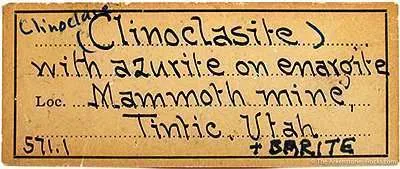 Clinoclase
(Clinoclasite)
with azurite on enargite
Loc. Mammoth mine,
Tintic, Utah
571.1 + BARITE
© The Arkenstone, iRocks.com